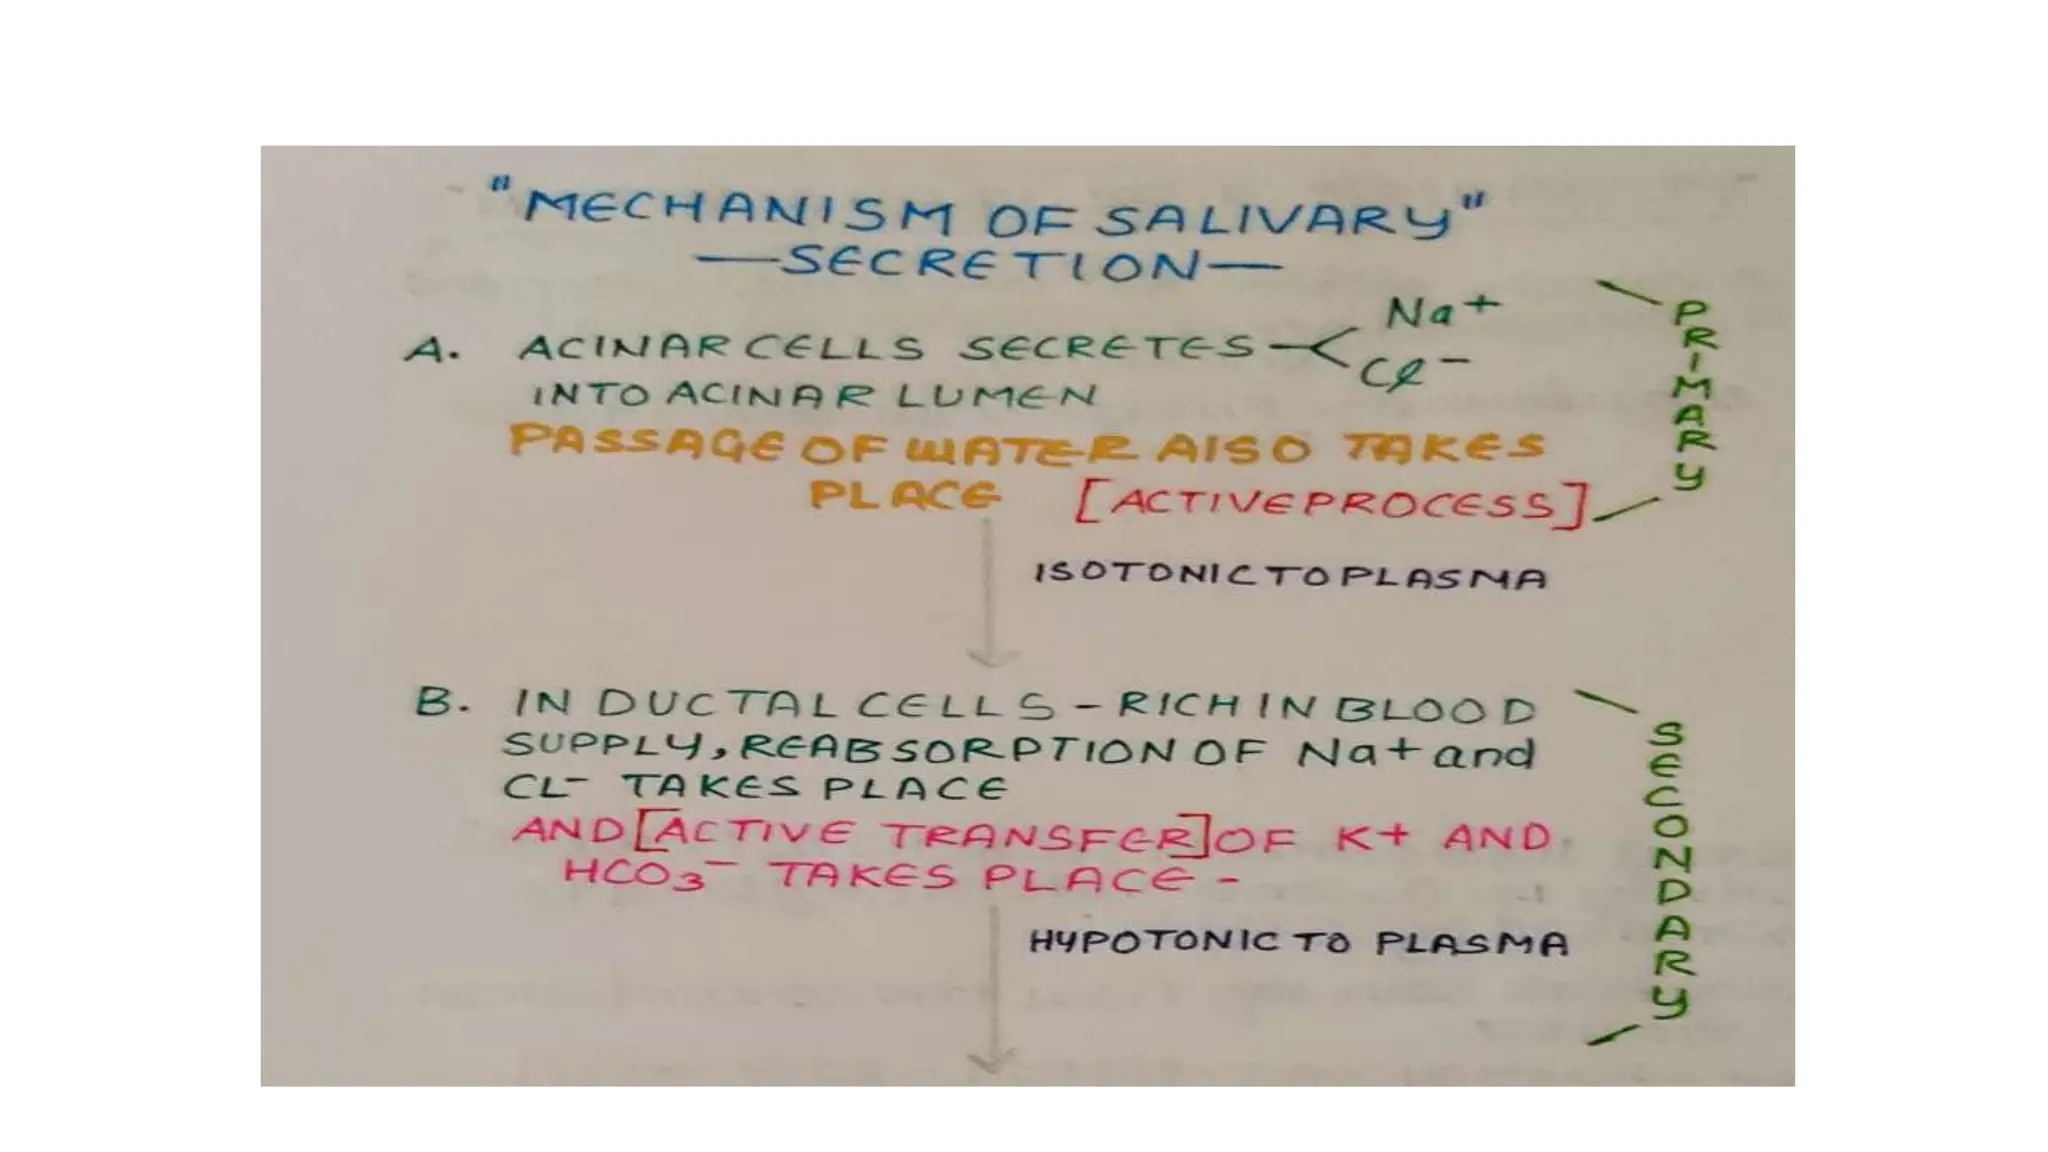 "MECHANISM OF SALIVARY"
—SECRETION—
Na+
A. ACINAR CELLS SECRETES
Cl-
INTO ACINAR LUMEN
PASSAGE OF WATER AlSO TAKES
PLACE [ACTIVE PROCESS]
PRIMARY
ISOTONIC TO PLASMA
B. IN DUCTAL CELLS - RICH IN BLOOD
SUPPLY, REABSORPTION OF Na+ and
CL- TAKES PLACE
AND [ACTIVE TRANSFER] OF K+ AND
HCO3- TAKES PLACE -
SECONDARY
HYPOTONIC TO PLASMA